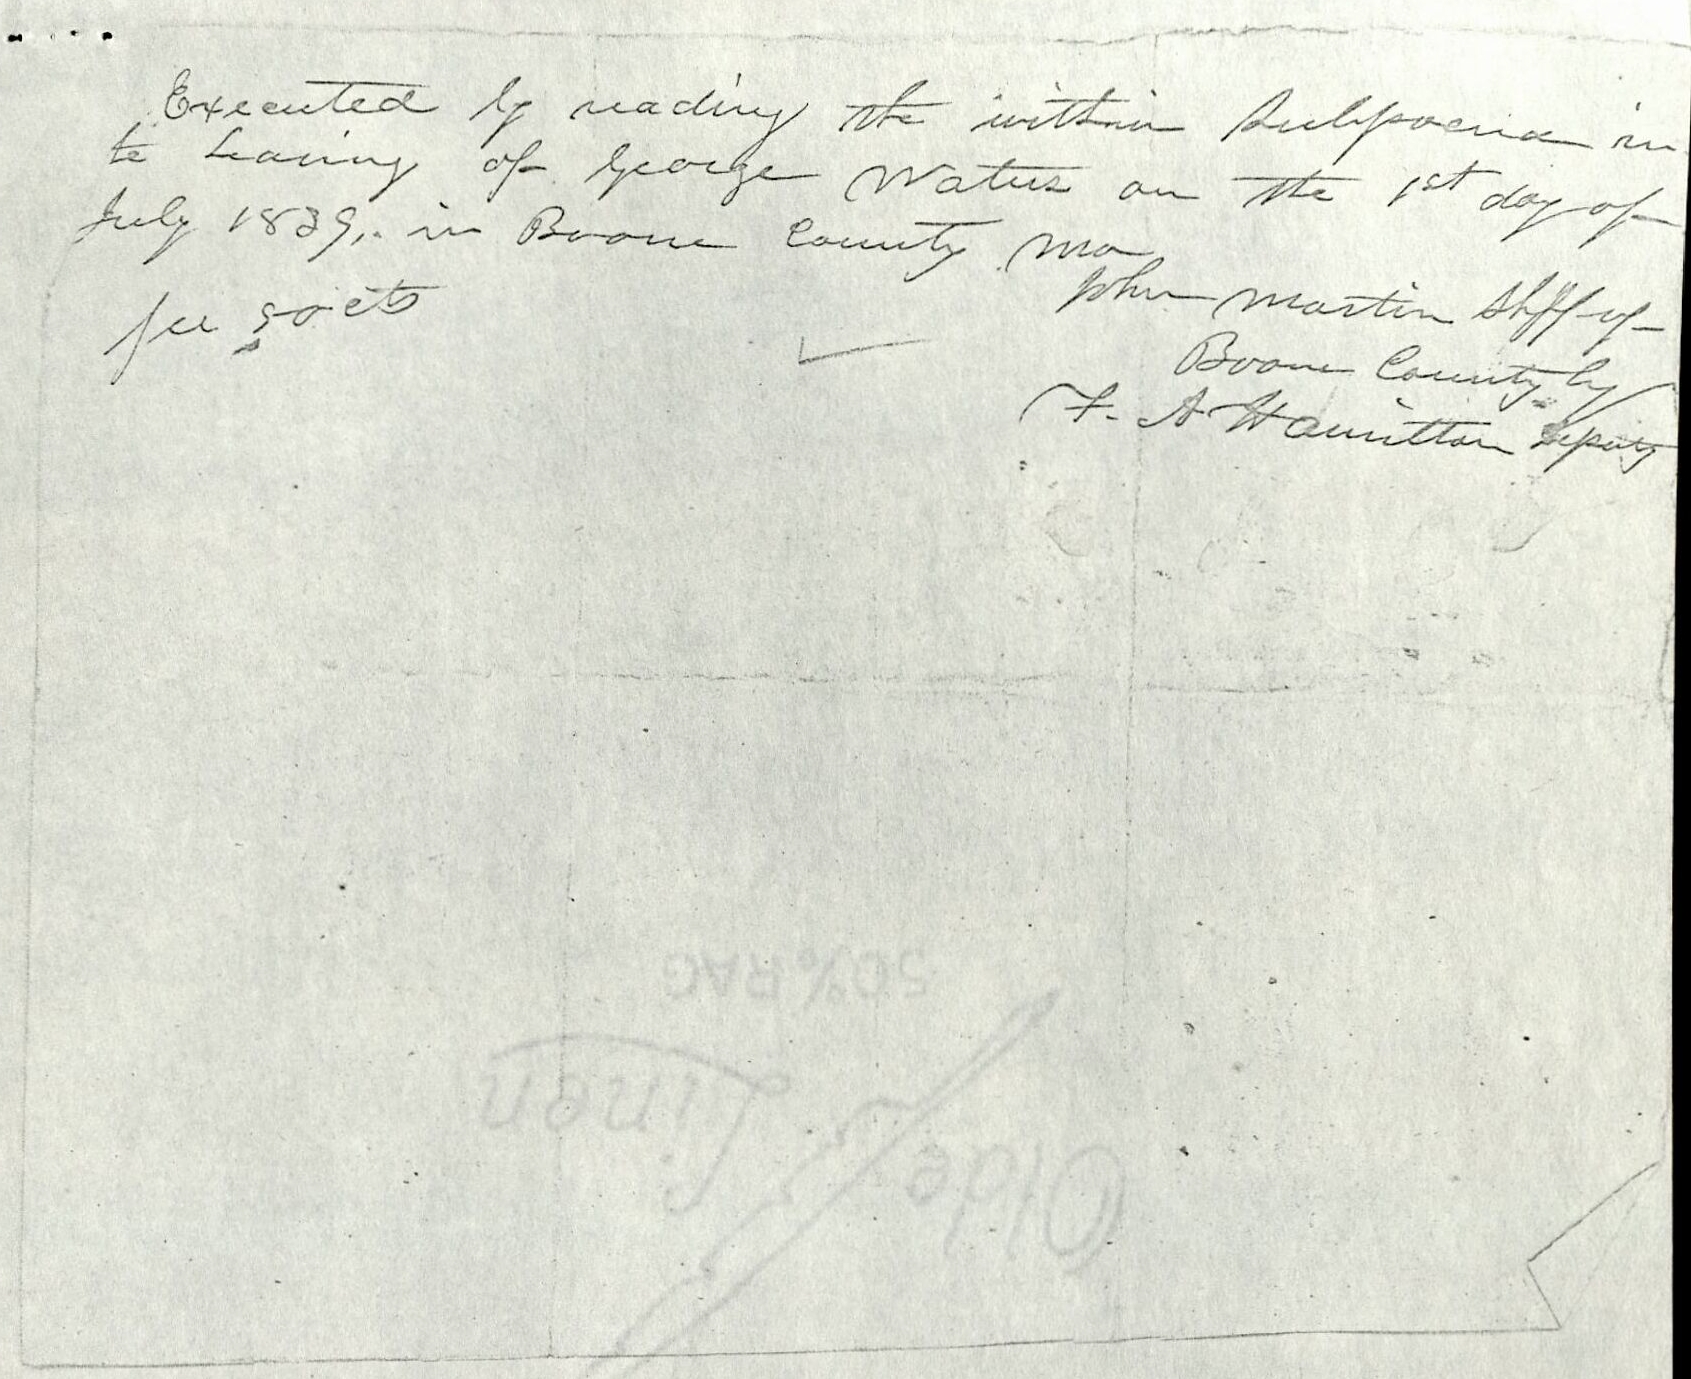 Executed by reading the within Subpoena in
te hearing of George Waters on the 1st day of
July 1839, in Boone County Mo
John Martin Shff of
fee 50 cts
Boone County by
F. A Hamilton Deputy
50% RAG
Linen
Olde